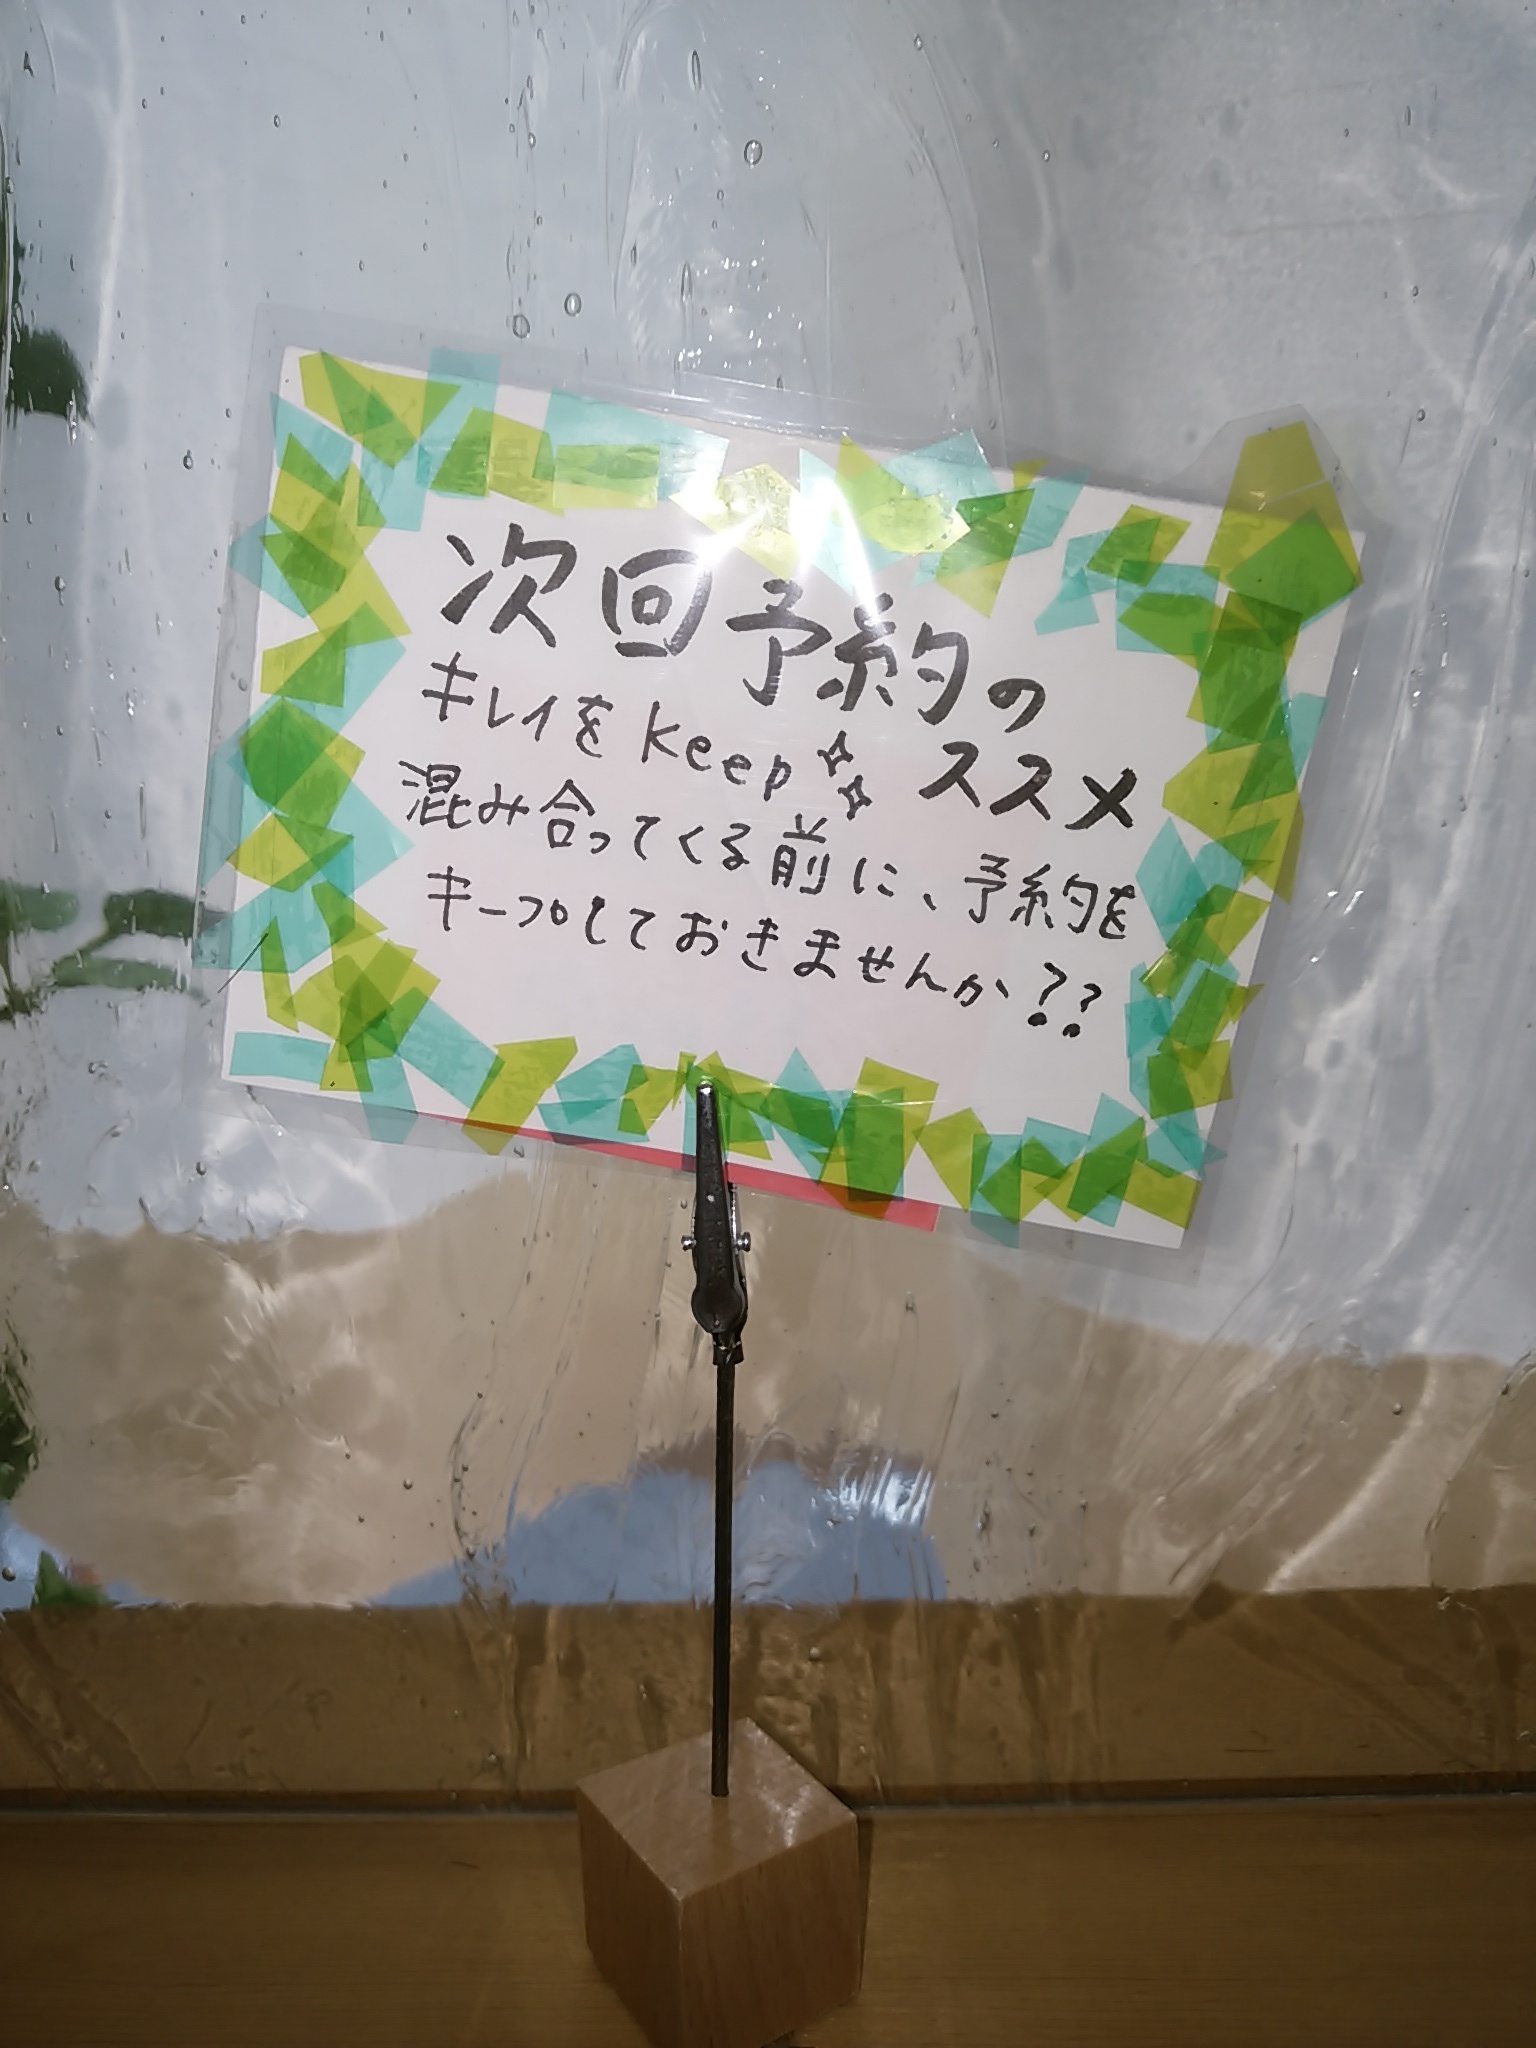 次回予約の
ススメ
キレイをkeep
混み合ってくる前に、予約を
キープしておきませんか??